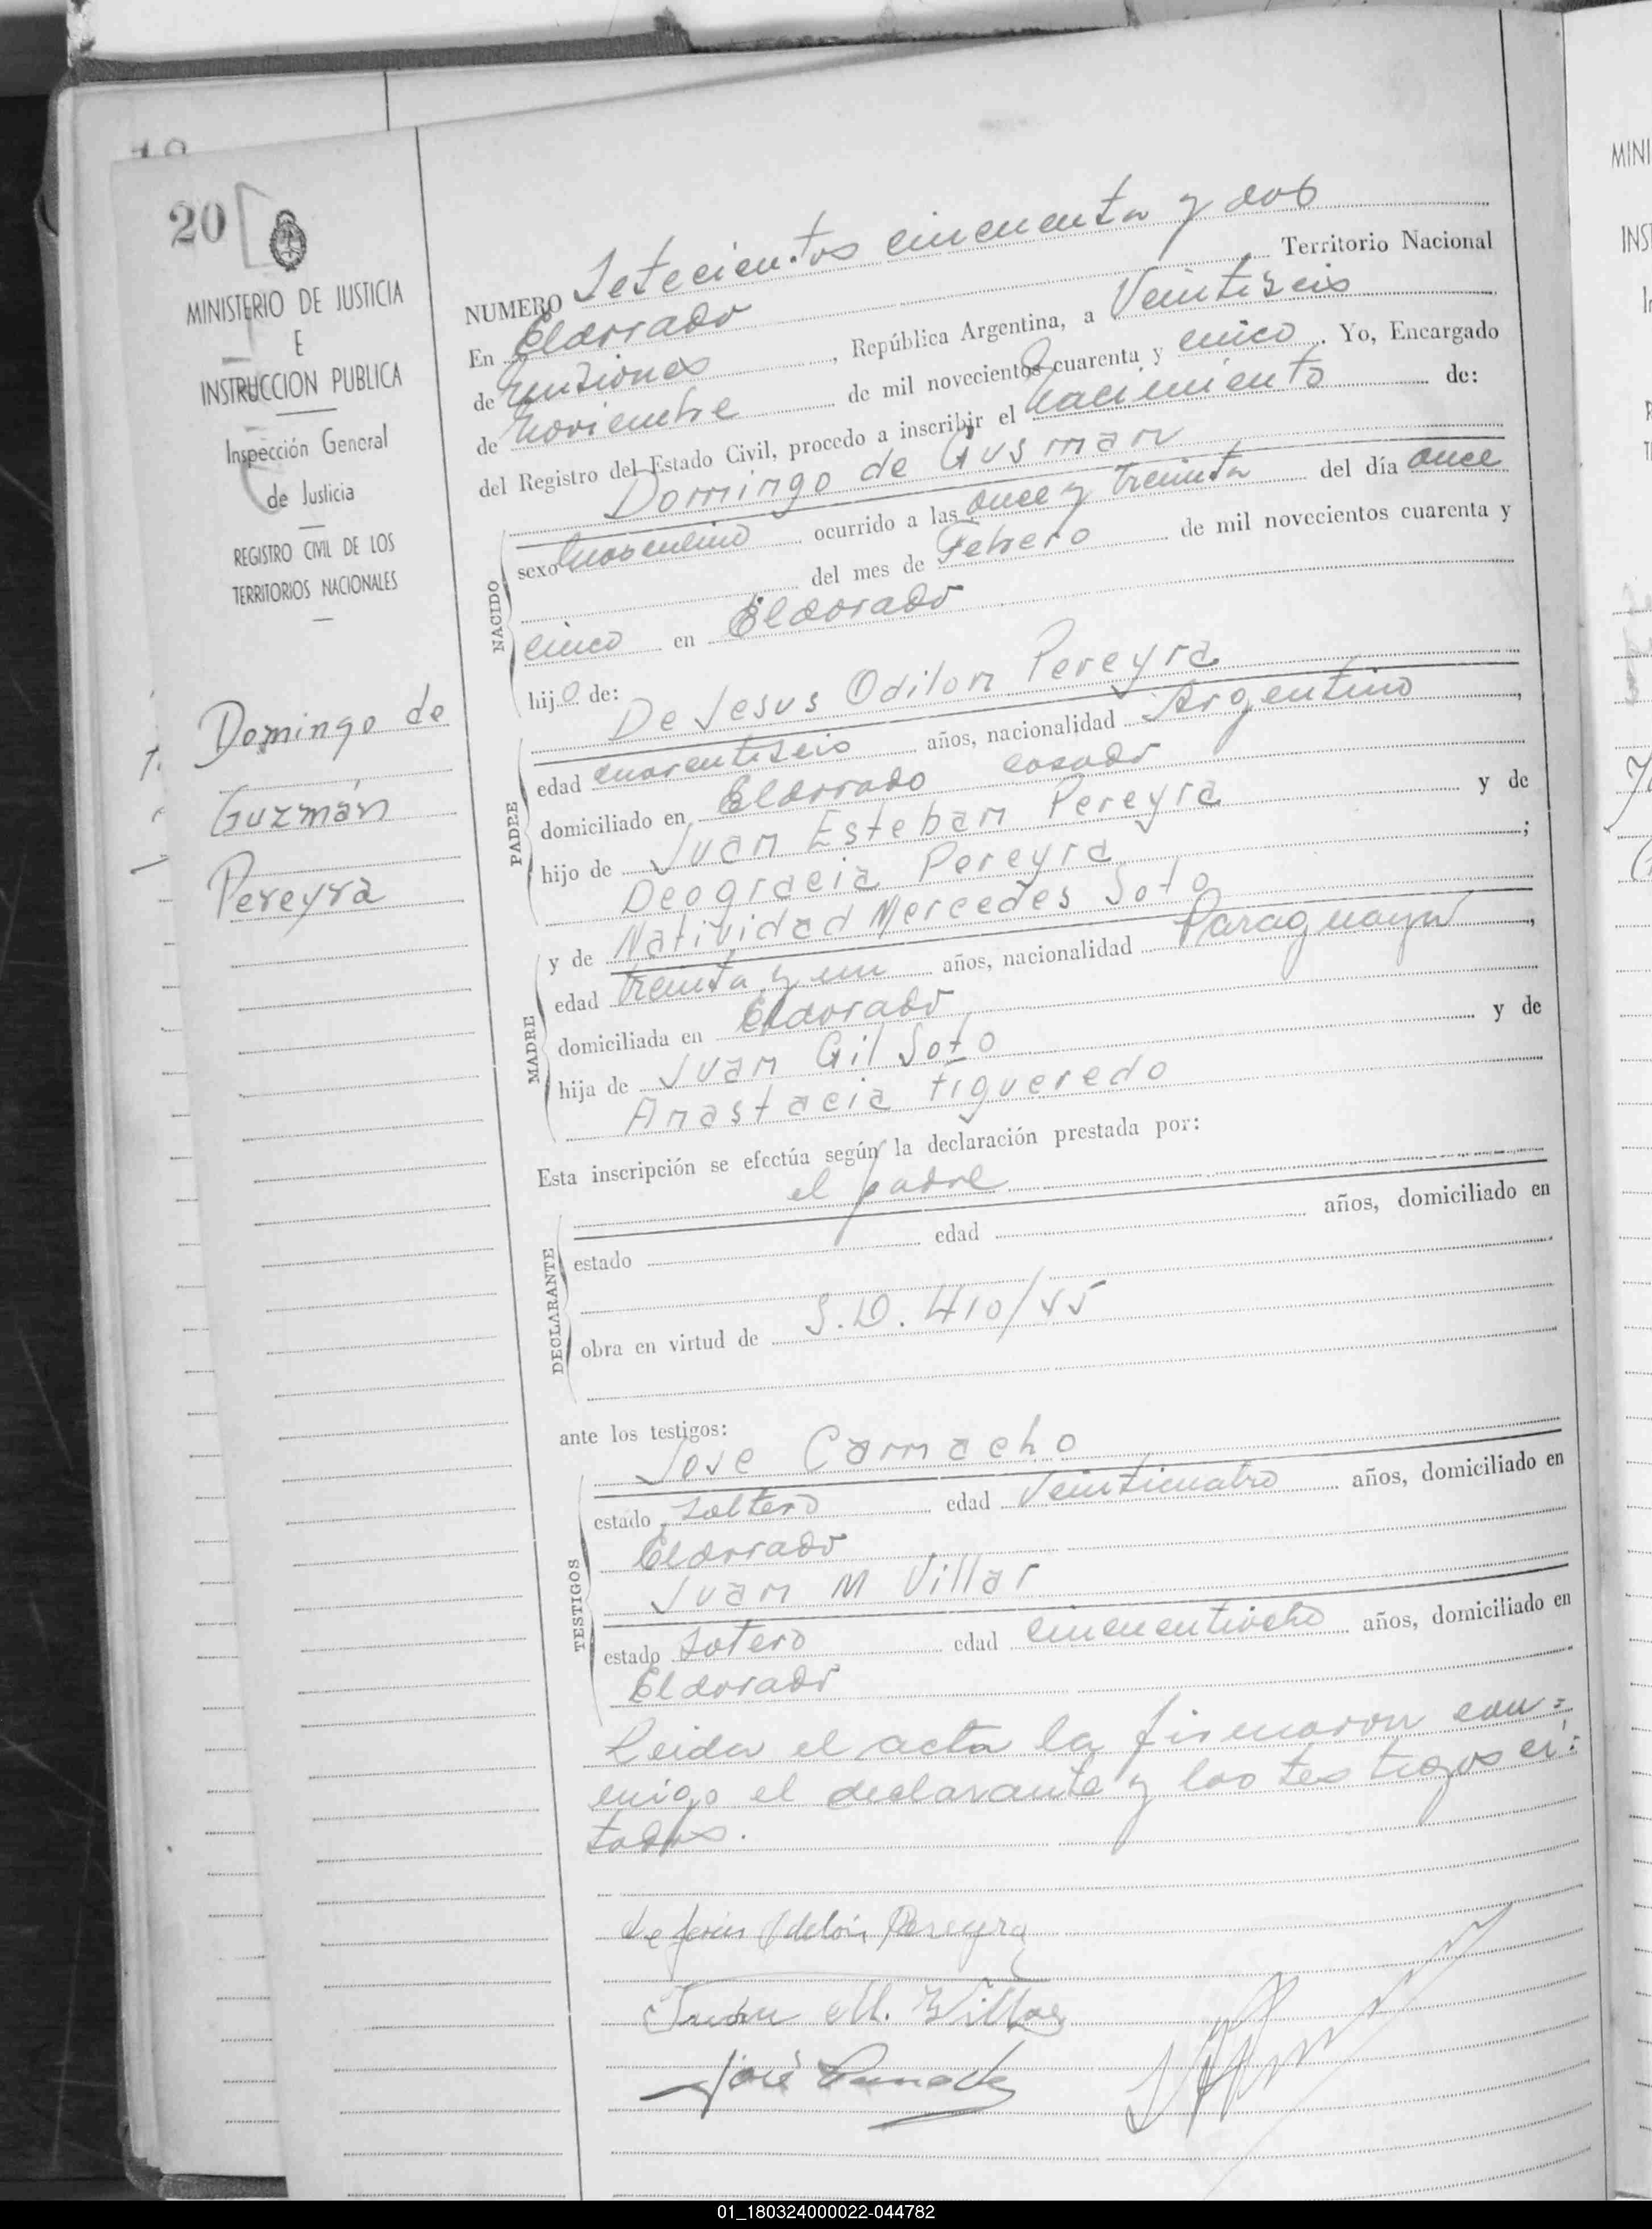 20
MINISTERIO DE JUSTICIA
E
INSTRUCCION PUBLICA
Inspección General
de Justicia
REGISTRO CIVIL DE LOS
TERRITORIOS NACIONALES
Domingo de
Guzmán
Pereyra
NUMERO Setecientos cincuenta y dos
En Eldorado Territorio Nacional
de Misiones, República Argentina, a Veintiseis
de Noviembre de mil novecientos cuarenta y cinco. Yo, Encargado
del Registro del Estado Civil, procedo a inscribir el Nacimiento de:
Domingo de Gusman
NACIDO
sexo Masculino ocurrido a las once y treinta del día once
del mes de Febrero de mil novecientos cuarenta y
cinco en Eldorado
hijo de:
PADRE
De Jesus Odilon Pereyra
edad cuarentiseis años, nacionalidad Argentino,
domiciliado en Eldorado casado
hijo de Juan Esteban Pereyra y de
Deogracia Pereyra;
MADRE
y de Natividad Mercedes Soto
edad treinta y un años, nacionalidad Paraguaya,
domiciliada en Eldorado
hija de Juan Gil Soto y de
Anastacia Figueredo
Esta inscripción se efectúa según la declaración prestada por:
el padre
DECLARANTE
estado edad años, domiciliado en
obra en virtud de S.D. 410/45
ante los testigos:
TESTIGOS
Jose Camacho
estado soltero edad Veinticuatro años, domiciliado en
Eldorado
Juan M Villar
estado sotero edad cincuentiocho años, domiciliado en
Eldorado
Leida el acta la firmaron con=
migo el declarante y los testigos ci:
tados.
de Jesús Odilón Pereyra
Juan M. Villar
José Camacho
MINI
INS
01_180324000022-044782